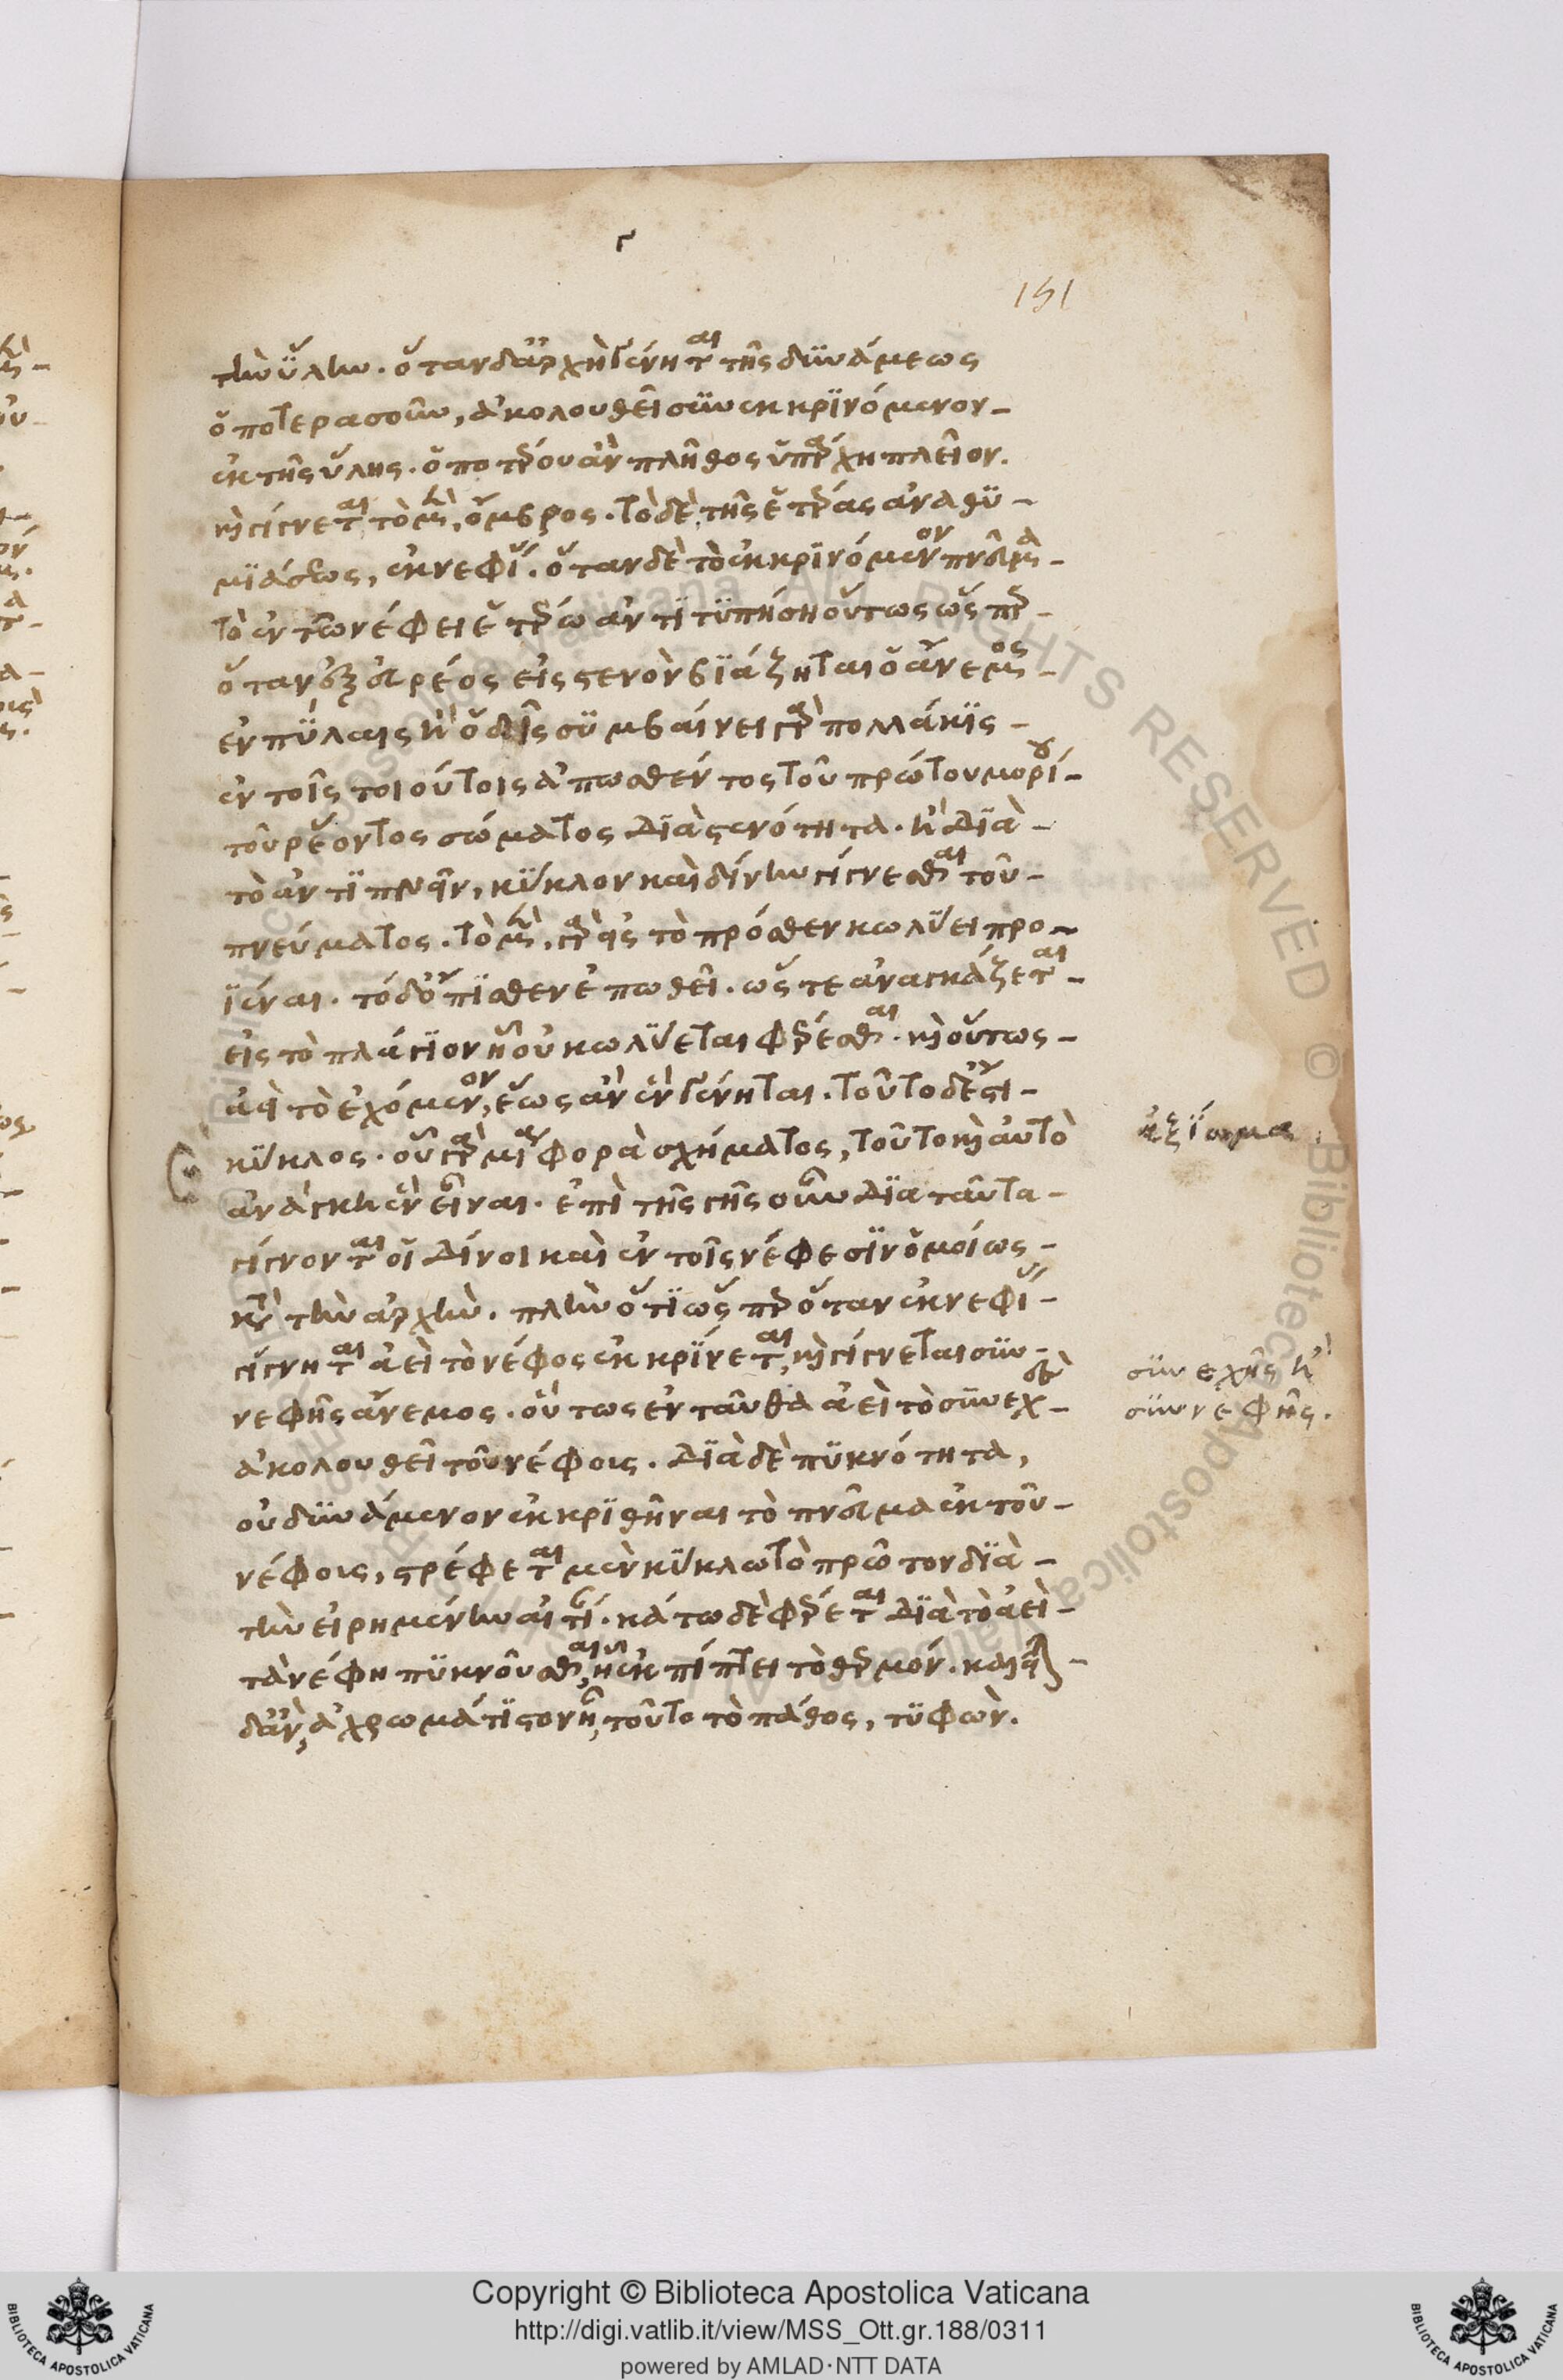 ρ
151
τὴν ὕλην. ὅταν δ' ἀρχὴ γένηται τῆς δυνάμεως
ὁποτερασοῦν, ἀκολουθεῖ συνεκκρινόμενον-
ἐκ τῆς ὕλης. ὁποτέρου ἂν πλῆθος ὑπάρχη πλεῖον.
καὶ γίγνεται τὸ μὲν, ὄμβρος. τὸ δὲ τῆς ἑτέρας ἀναθυ-
μιάσεως, ἐκνεφί. ὅταν δὲ τὸ ἐκκρινόμενον πνεῦμα-
τὸ ἐν τῶ νέφει ἑτέρω ἀντιτυπήση οὕτως ὥσπερ-
ὅταν ἐξ εὐρέος εἰς στενὸν βιάζηται ὁ ἄνεμος-
ἐν πύλαις ἢ ὁδοῖς συμβαίνει γὰρ πολλάκις-
ἐν τοῖς τοιούτοις ἀπωσθέντος τοῦ πρώτου μορίου-
τοῦ ῥέοντος σώματος διὰ στενότητα. ἢ διὰ-
τὸ ἀντιπνεῖν, κύκλον καὶ δίνην γίγνεσθαι τοῦ-
πνεύματος. τὸ μὲν γὰρ εἰς τὸ πρόσθεν κωλύει προ-
ϊέναι. τὸ δ' ὄπισθεν ἐπωθεῖ. ὥστε ἀναγκάζεται-
εἰς τὸ πλάγιον ἧ οὐ κωλύεται φέρεσθαι. καὶ οὕτως-
ἀεὶ τὸ ἐχόμενον, ἕως ἂν ἓν γένηται. τοῦτο δ' ἐστι-
κύκλος. οὗ γὰρ μία φορὰ σχήματος, τοῦτο καὶ αὐτὸ
ἀνάγκη ἓν εἶναι. ἐπὶ τῆς γῆς οὖν διὰ ταῦτα-
γίγνονται οἱ δίνοι καὶ ἐν τοῖς νέφεσιν ὁμοίως-
κατὰ τὴν ἀρχὴν. πλὴν ὅτι ὥσπερ ὅταν ἐκνεφί-
γίγνηται ἀεὶ τὸ νέφος ἐκκρίνεται, καὶ γίγνεται συν-
νεφὴς ἄνεμος. οὕτως ἐνταῦθα ἀεὶ τὸ συνεχὲς-
ἀκολουθεῖ τοῦ νέφους. διὰ δὲ πυκνότητα,
οὐ δυνάμενον ἐκκριθῆναι τὸ πνεῦμα ἐκ τοῦ-
νέφους, στρέφεται μὲν κύκλω τὸ πρῶτον διὰ-
τὴν εἰρημένην αἰτί. κάτω δὲ φέρεται διὰ τὸ ἀεὶ-
τὰ νέφη πυκνοῦσθαι, ἧ ἐκπίπτει τὸ θερμόν. καλεῖται-
δ' ἂν, ἀχρωμάτιστον ἦ, τοῦτο τὸ πάθος, τυφὼν.
ἀξίωμα
συνεχὴς ἢ
συννεφής.
Copyright © Biblioteca Apostolica Vaticana
http://digi.vatlib.it/view/MSS_Ott.gr.188/0311
powered by AMLAD·NTT DATA